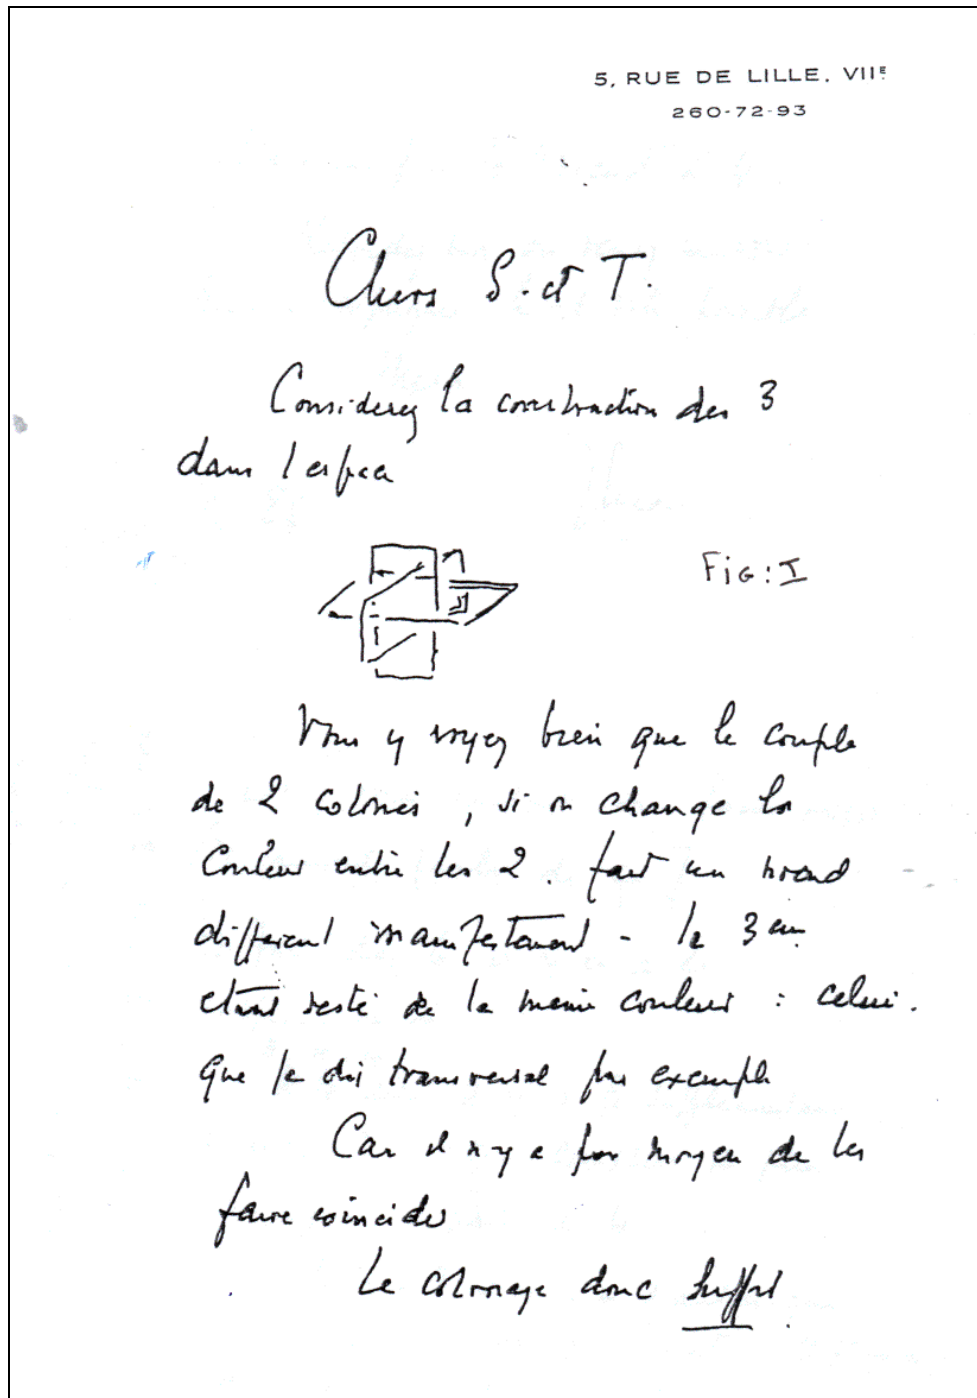 5, RUE DE LILLE, VIIE
260-72-93
Chers S. et T.
Considerez la construction des 3
dans l'espace
Fig: I
Vous y voyez bien que le couple
de 2 coloriés, si on change la
couleur entre les 2. fait un nœud
different manifestement - le 3em
etant resté de la meme couleur : celui.
que je dis transversal par exemple
Car il n'y a pas moyen de les
faire coincider
Le coloriage donc suffit.